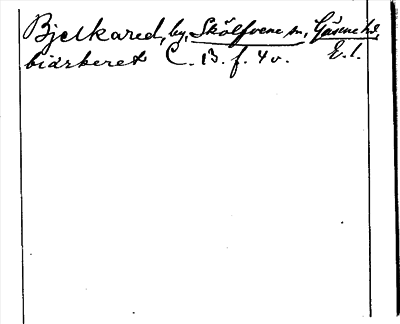 Bjelkared, by, Skölfvene sn, Gäsene hd,
biærkeret C. 13. f. 4 v. E. l.